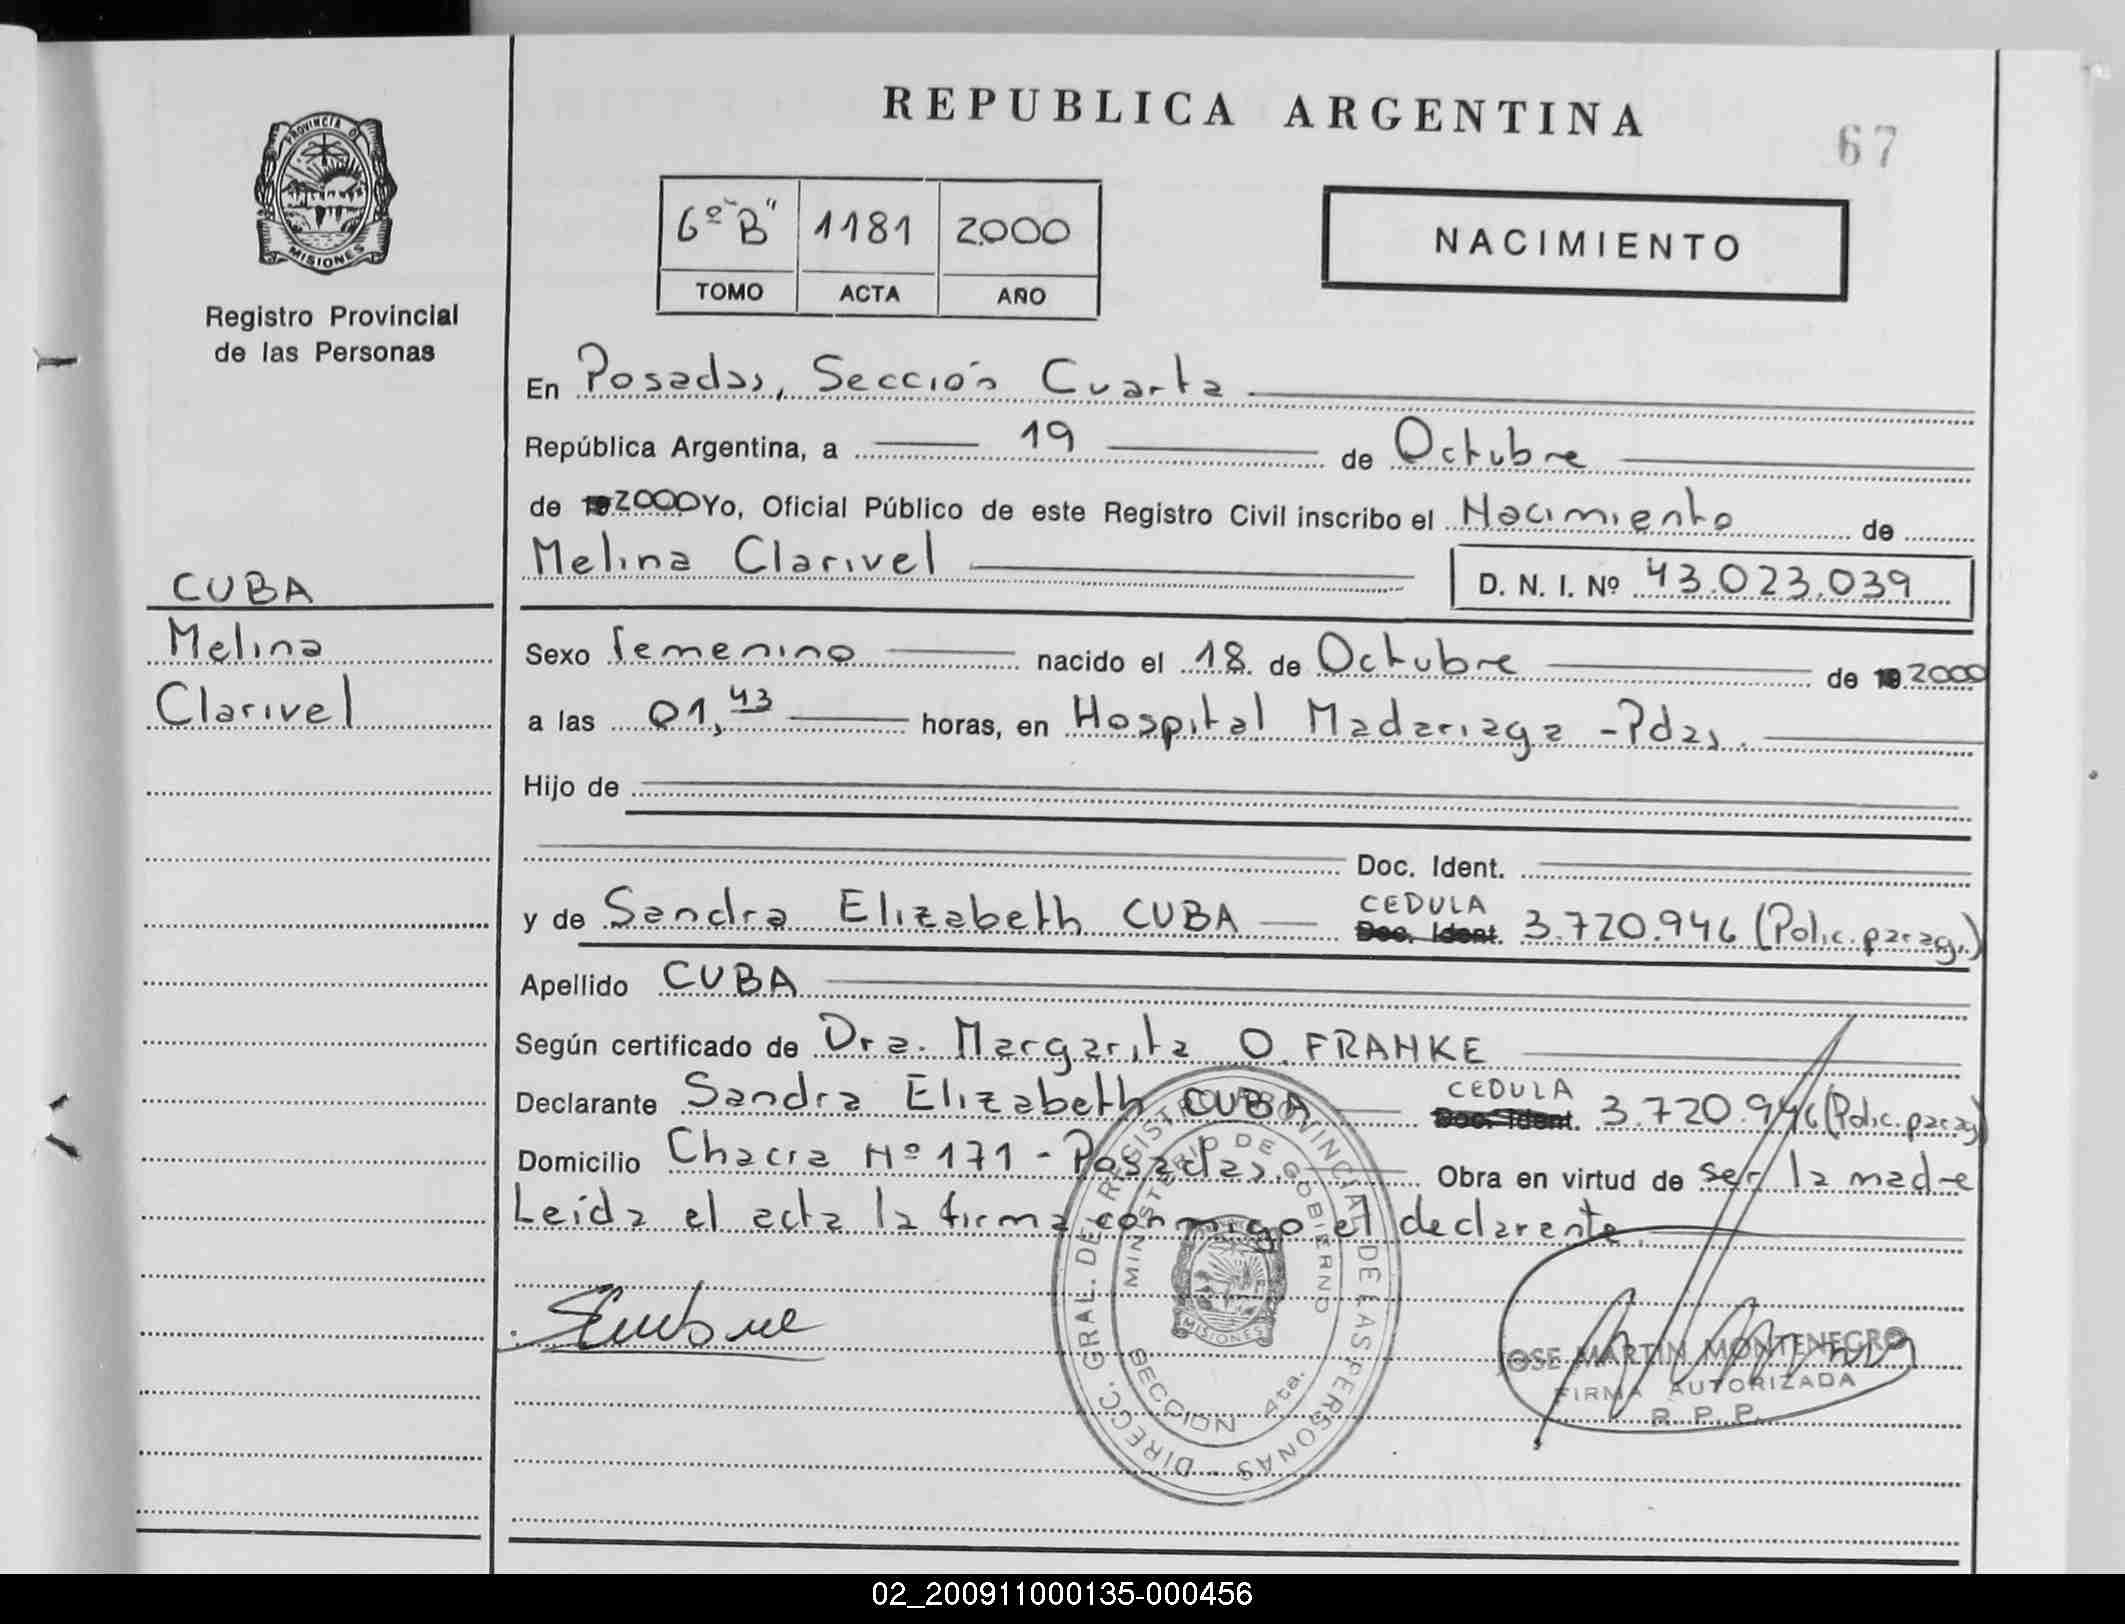 REPUBLICA ARGENTINA
67
PROVINCIA DE MISIONES
Registro Provincial
de las Personas
6º "B" 1181 2000
TOMO ACTA AÑO
NACIMIENTO
En Posadas, Sección Cuarta
República Argentina, a 19 de Octubre
de 19 2000 Yo, Oficial Público de este Registro Civil inscribo el Nacimiento de
Melina Clarivel D. N. I. Nº 43.023.039
CUBA
Melina
Clarivel
Sexo femenino nacido el 18 de Octubre de 19 2000
a las 01,43 horas, en Hospital Madariaga - Pdas.
Hijo de
Doc. Ident.
y de Sandra Elizabeth CUBA CEDULA Doc. Ident. 3.720.946 (Polic. parag.)
Apellido CUBA
Según certificado de Dra. Margarita O. FRANKE
Declarante Sandra Elizabeth CUBA CEDULA Doc. Ident. 3.720.946 (Polic. parag)
Domicilio Chacra Nº 171 - Posadas. Obra en virtud de ser la madre
Leida el acta la firma conmigo el declarante.
DIRECC. GRAL. DE REGISTRO PROVINCIAL DE LAS PERSONAS
MINISTERIO DE GOBIERNO
MISIONES
SECCION 4ta.
JOSE MARTIN MONTENEGRO
FIRMA AUTORIZADA
R. P. P.
02_200911000135-000456